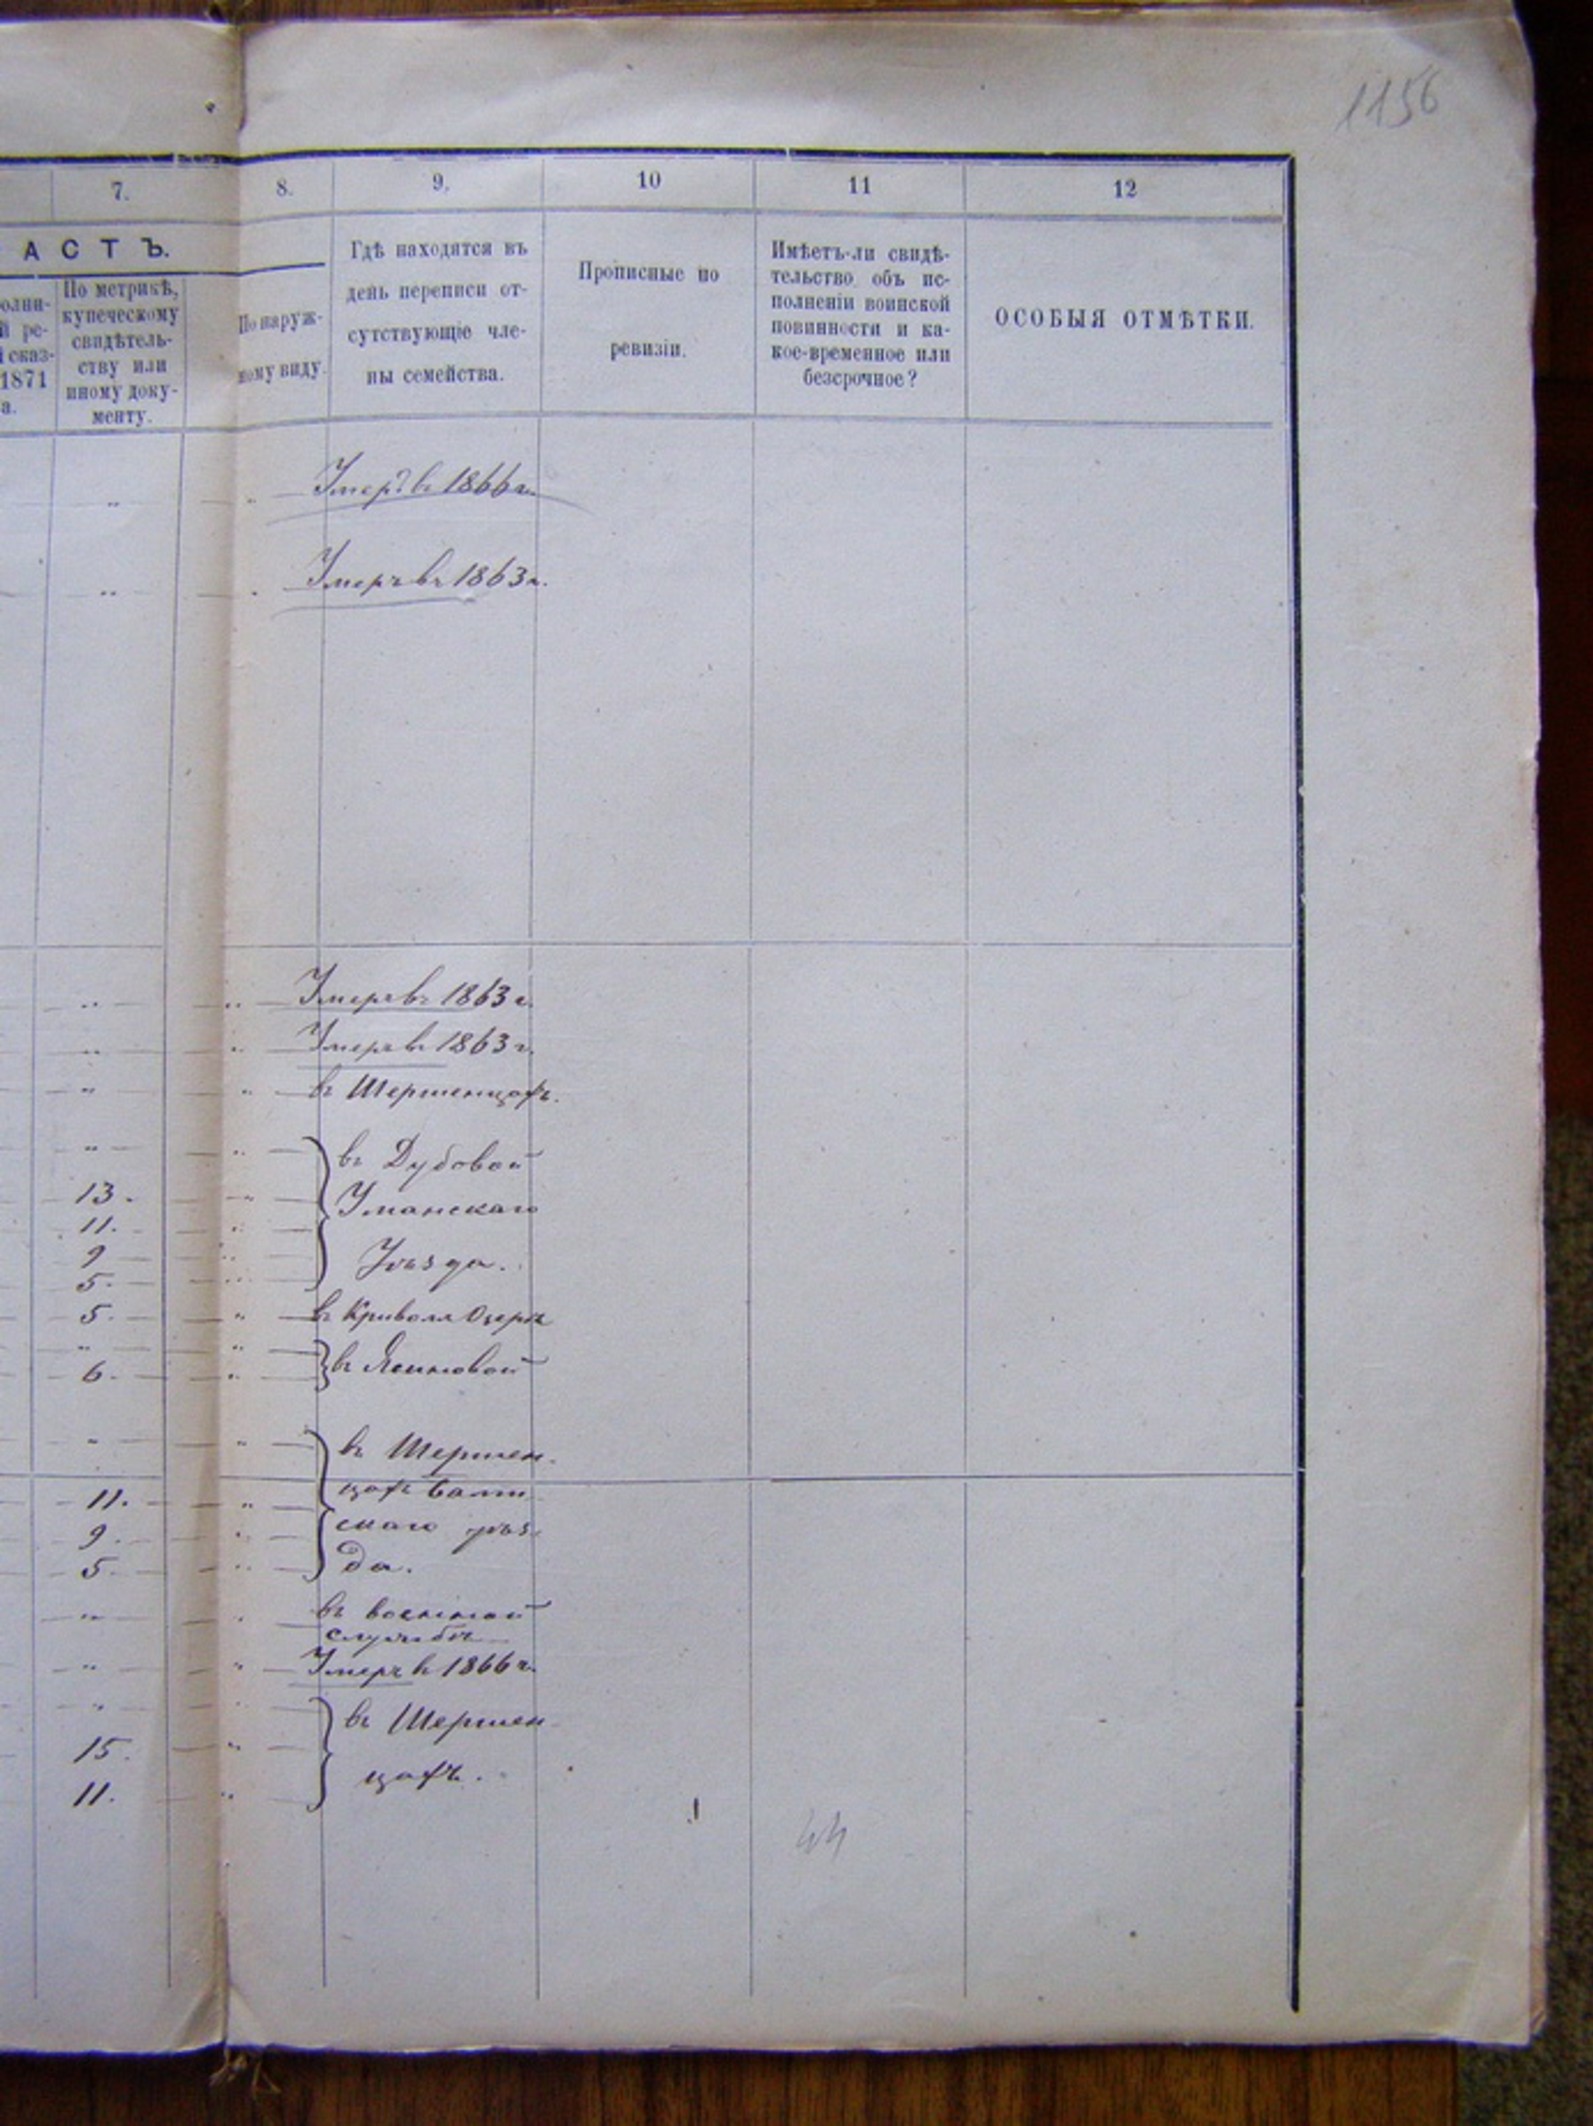 1156
7. 8. 9. 10 11 12
АСТЪ.
По метрикѣ,
купеческому
свидѣтель-
ству или
иному доку-
менту.
По наруж-
ному виду.
Гдѣ находятся въ
день переписи от-
сутствующіе чле-
ны семейства.
Прописные по
ревизіи.
Имѣетъ-ли свидѣ-
тельство объ ис-
полненіи воинской
повинности и ка-
кое-временное или
безсрочное?
ОСОБЫЯ ОТМѢТКИ.
олни-
й ре-
сказ-
1871
а.
Умеръ въ 1866 г.
Умеръ въ 1863 г.
Умеръ въ 1863 г.
Умеръ въ 1863 г.
въ Шершенцахъ.
въ Дубовой
13. Уманскаго
11.
9 Уѣзда.
5.
5. въ Кривомъ Озерѣ
6. въ Ясиновой
въ Шершен-
11. цахъ Балт-
9. скаго уѣз-
5. да.
въ военной
службѣ
Умеръ въ 1866 г.
въ Шершен-
15.
11. цахъ.
44